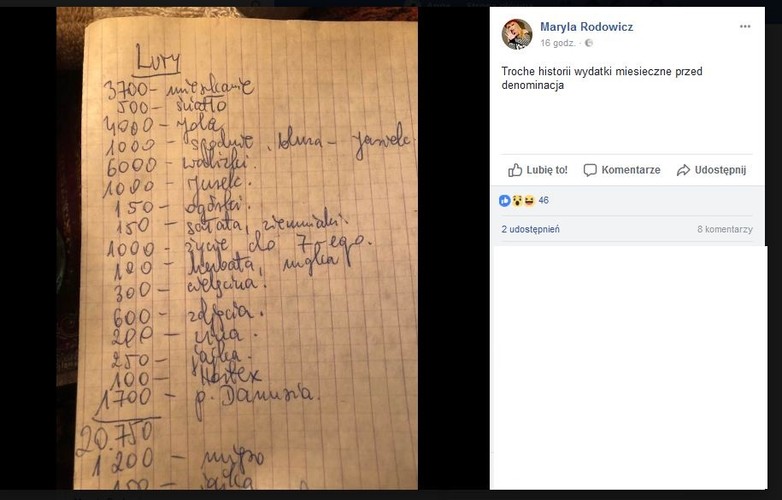 Luty
3700 – mieszkanie
500 – światło
4000 – Jola
1000 – spodnie, bluza –
6000 – walizki.
1000 – Jurek.
150 – ogórki.
150 – sałata, ziemniaki.
1000 – życie do 7-ego.
100 – herbata, mąka
300 – cielęcina.
600 – zdjęcia.
200 –
250 – jajka.
100 – Hortex
1700 – p. Danusia.
20.750
1200 – mięso
150 – jajka
Maryla Rodowicz
16 godz. ·
Troche historii wydatki miesieczne przed
denominacja
Lubię to! Komentarze Udostępnij
46
2 udostępnień 8 komentarzy